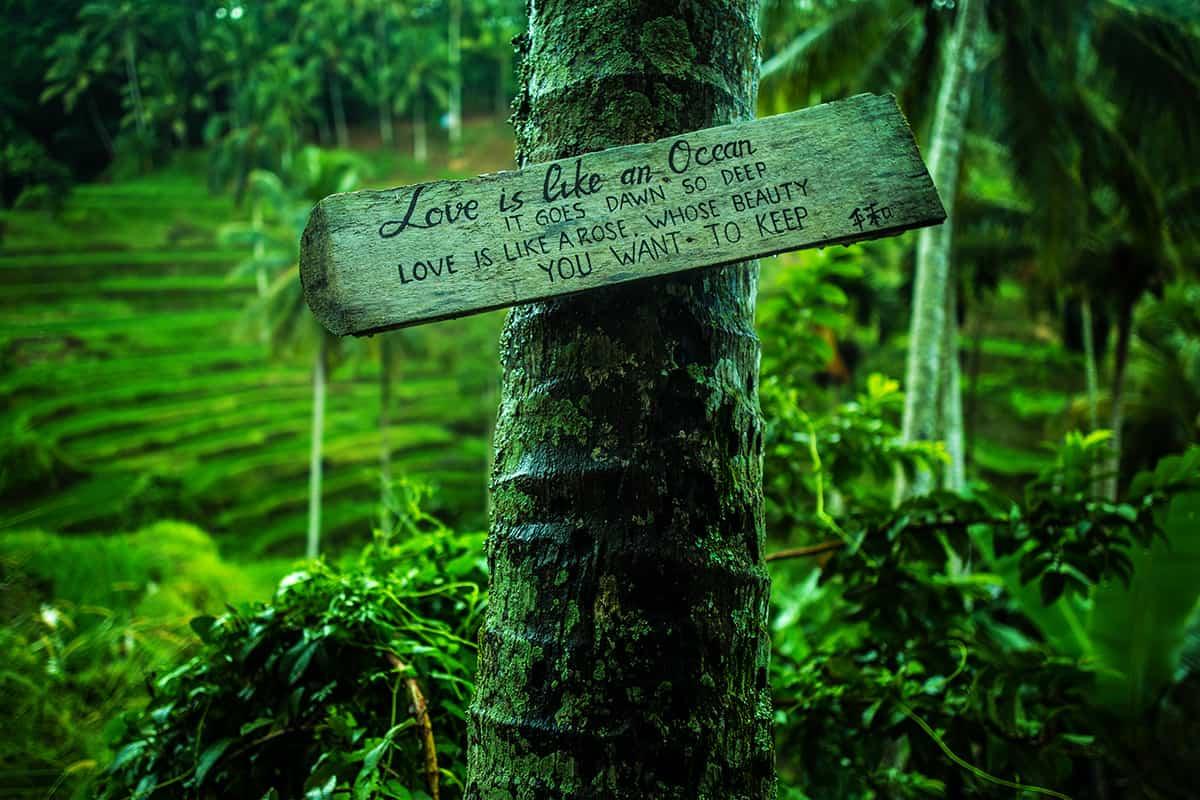 Love is like an Ocean
IT GOES DAWN SO DEEP
LOVE IS LIKE A ROSE. WHOSE BEAUTY
YOU WANT TO KEEP